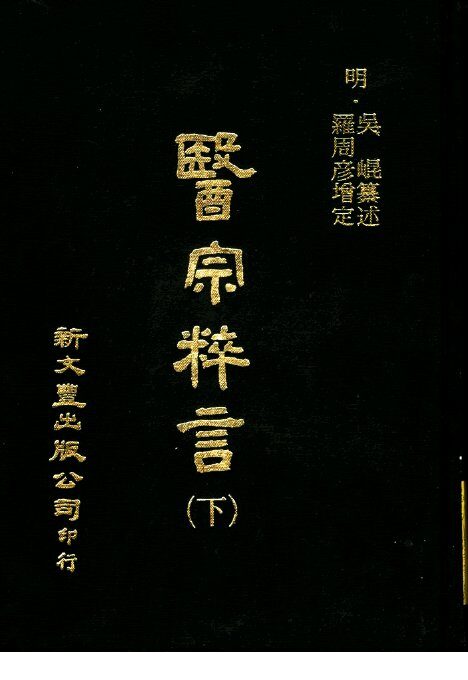 明·吳崐纂述
羅周彥增定
醫宗粹言
(下)
新文豐出版公司印行